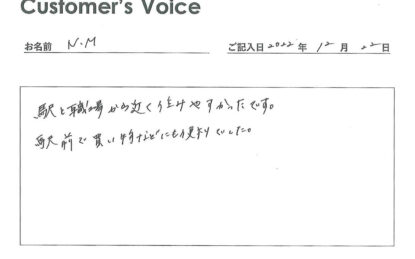 Customer's Voice
お名前 N.M ご記入日 2022 年 12 月 22 日
駅と職場から近く住みやすかったです。
駅前で買い物などにも便利でした。